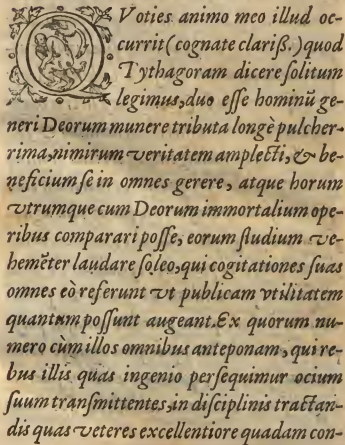 QVoties animo meo illud oc-
currit (cognate clariß.) quod
Pythagoram dicere ſolitum
legimus, duo eſſe hominũ ge-
neri Deorum munere tributa longè pulcher-
rima, nimirum veritatem amplecti, & be-
neficium ſe in omnes gerere, atque horum
vtrumque cum Deorum immortalium ope-
ribus comparari poſſe, eorum ſtudium ve-
hemẽter laudare ſoleo, qui cogitationes ſuas
omnes eò referunt vt publicam vtilitatem
quantum poſſunt augeant. Ex quorum nu-
mero cùm illos omnibus anteponam, qui re-
bus illis quas ingenio perſequimur ocium
ſuum tranſmittentes, in diſciplinis tractan-
dis quas veteres excellentiore quadam con-